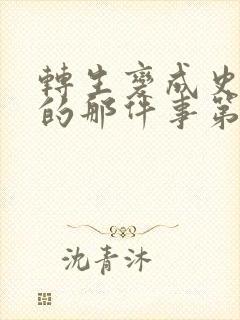 轉生變成史
的那件事第
沈青沐